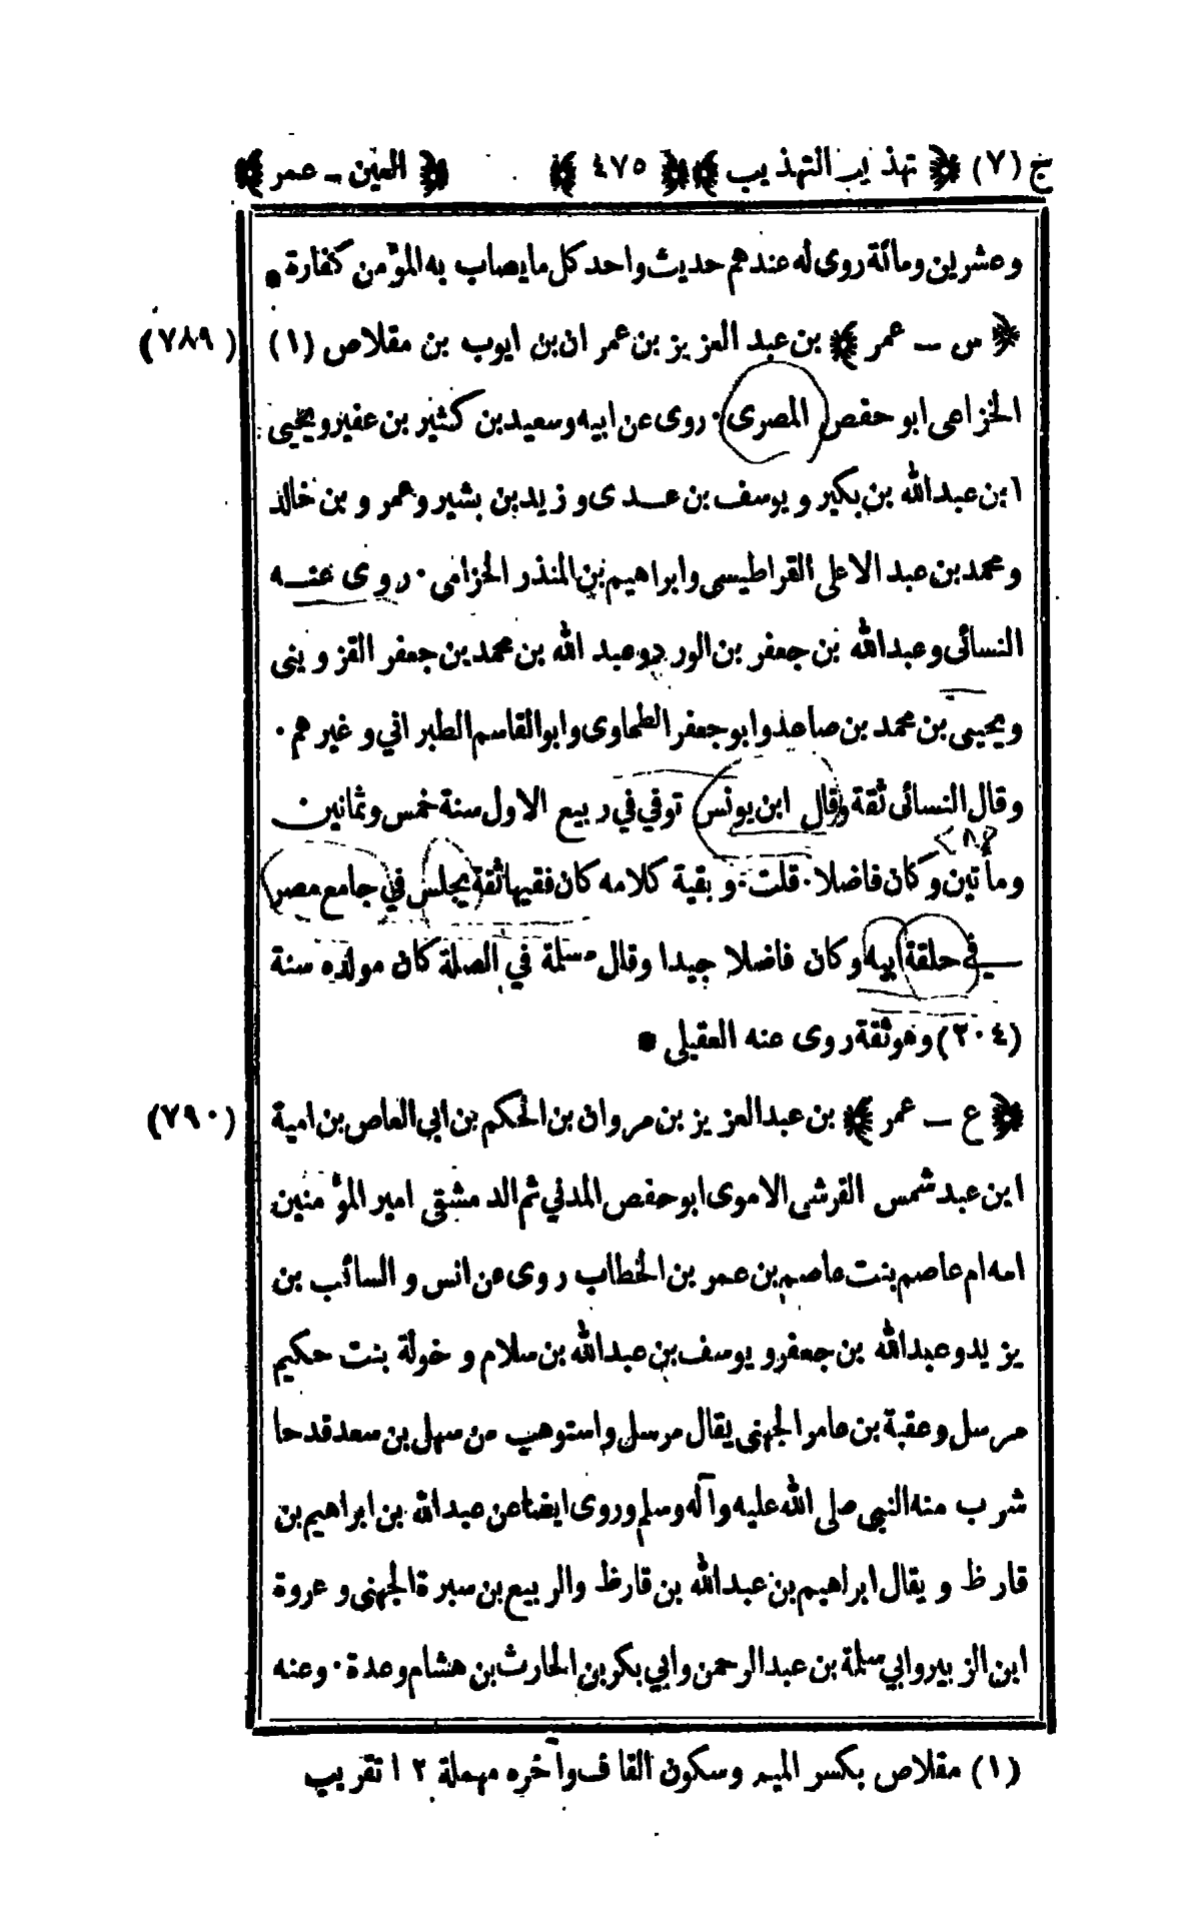 ج (٧) ﴿ تهذيب التهذيب ﴾ ﴿ ٤٧٥ ﴾ ﴿ العين ــ عمر ﴾
وعشرين ومائة روى له عندهم حديث واحد كل ما يصاب به المؤمن كفارة *
﴿ س ــ عمر ﴾ بن عبد العزيز بن عمران بن ايوب بن مقلاص (١) (٧٨٩)
الخزاعى ابو حفص المصرى. روى عن ابيه وسعيد بن كثير بن عفير ويحيى
ابن عبدالله بن بكير و يوسف بن عــدى و زيد بن بشير وعمرو بن خالد
ومحمد بن عبد الاعلى القراطيسى وابراهيم بن المنذر الحزامى. روى عنــه
النسائى وعبدالله بن جعفر بن الورد وعبد الله بن محمد بن جعفر القزوينى
ويحيى بن محمد بن صاعد وابو جعفر الطحاوى وابو القاسم الطبراني وغيرهم.
وقال النسائى ثقة وقال ابن يونس توفي في ربيع الاول سنة خمس وثمانين
ومأتين وكان فاضلا. قلت. وبقية كلامه كان فقيها ثقة يجلس في جامع مصر
في حلقة ابيه وكان فاضلا جيدا وقال مسلمة في الصلة كان مولده سنة
(٢٠٤) وهو ثقة روى عنه العقيلى *
﴿ ع ــ عمر ﴾ بن عبد العزيز بن مروان بن الحكم بن ابى العاص بن امية (٧٩٠)
ابن عبد شمس القرشى الاموى ابو حفص المدني ثم الدمشقى امير المؤمنين
امه ام عاصم بنت عاصم بن عمر بن الخطاب روى عن انس و السائب بن
يزيد وعبدالله بن جعفر و يوسف بن عبدالله بن سلام و خولة بنت حكيم
مرسل وعقبة بن عامر الجهنى يقال مرسل واستوهب من سهل بن سعد قدحا
شرب منه النبى صلى الله عليه وآله وسلم وروى ايضا عن عبدالله بن ابراهيم بن
قارظ و يقال ابراهيم بن عبدالله بن قارظ والربيع بن سبرة الجهنى وعروة
ابن الزبير وابي سلمة بن عبدالرحمن وابي بكر بن الحارث بن هشام وعدة. وعنه
(١) مقلاص بكسر الميم وسكون القاف وآخره مهملة ١٢ تقريب